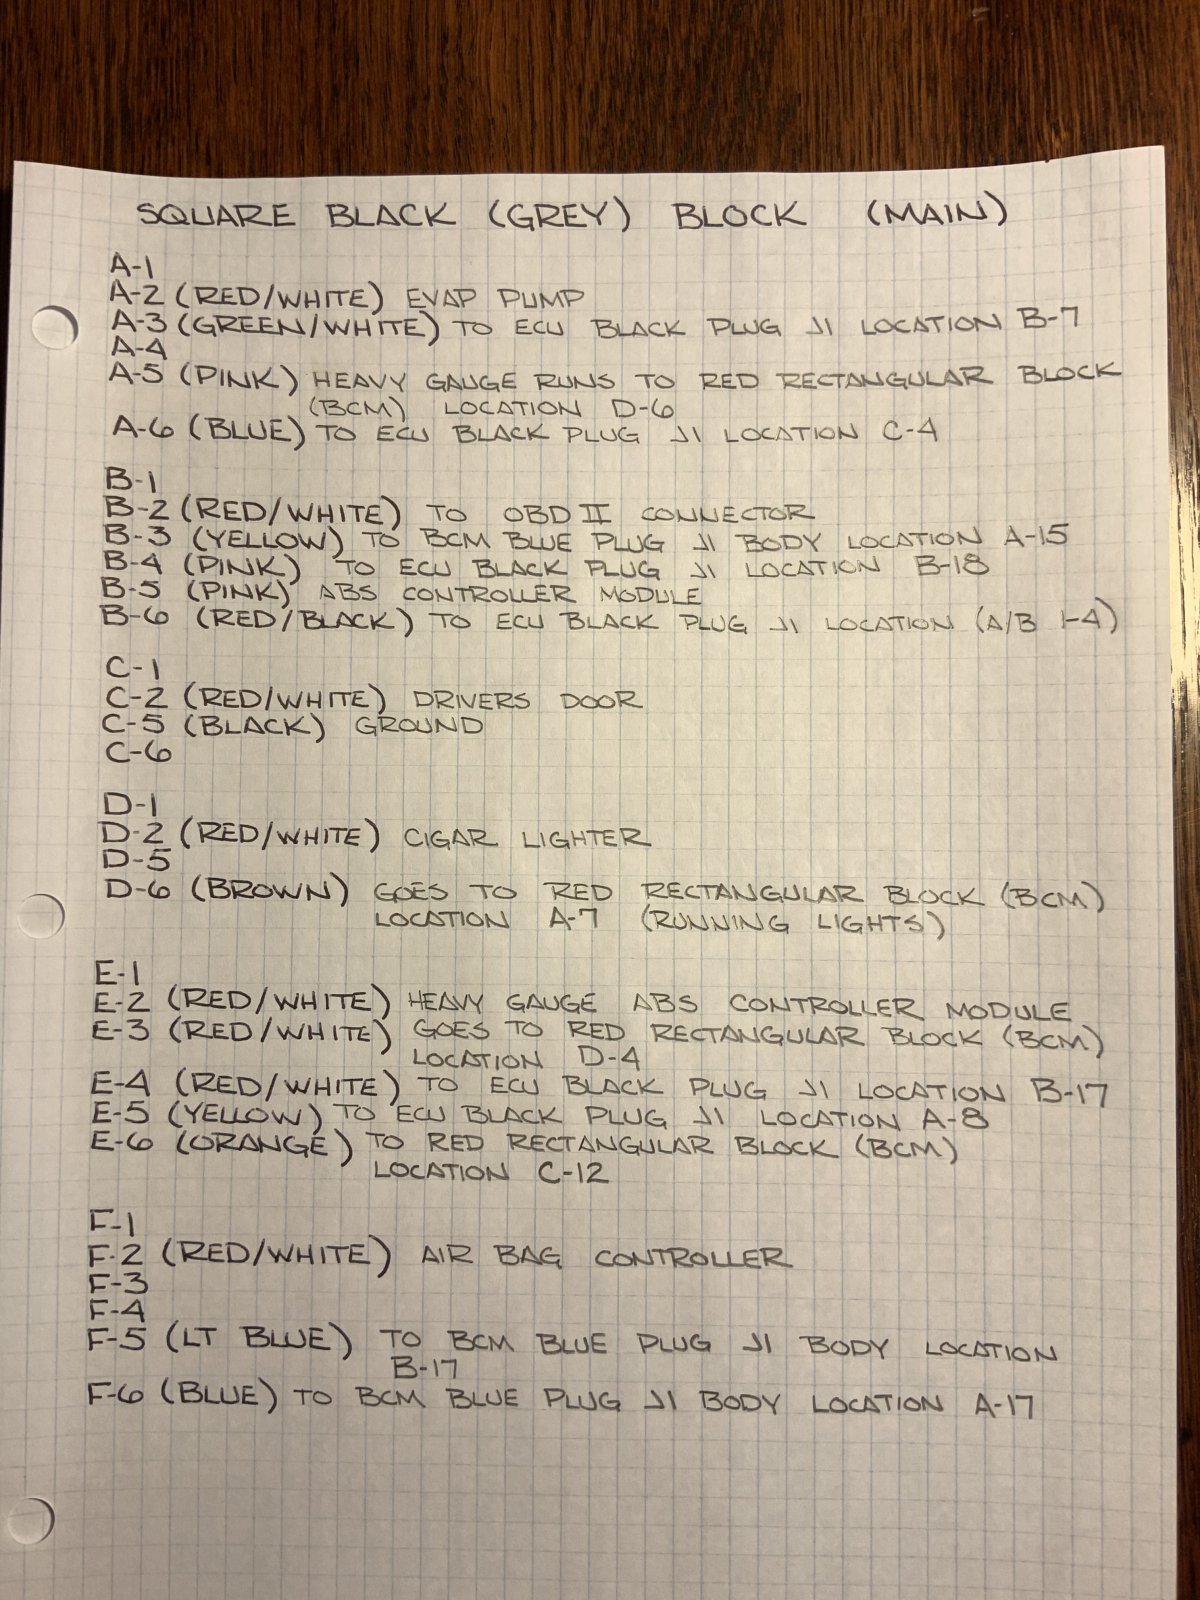 SQUARE BLACK (GREY) BLOCK (MAIN)
A-1
A-2 (RED/WHITE) EVAP PUMP
A-3 (GREEN/WHITE) TO ECU BLACK PLUG J1 LOCATION B-7
A-4
A-5 (PINK) HEAVY GAUGE RUNS TO RED RECTANGULAR BLOCK
(BCM) LOCATION D-6
A-6 (BLUE) TO ECU BLACK PLUG J1 LOCATION C-4
B-1
B-2 (RED/WHITE) TO OBD II CONNECTOR
B-3 (YELLOW) TO BCM BLUE PLUG J1 BODY LOCATION A-15
B-4 (PINK) TO ECU BLACK PLUG J1 LOCATION B-18
B-5 (PINK) ABS CONTROLLER MODULE
B-6 (RED/BLACK) TO ECU BLACK PLUG J1 LOCATION (A/B 1-4)
C-1
C-2 (RED/WHITE) DRIVERS DOOR
C-5 (BLACK) GROUND
C-6
D-1
D-2 (RED/WHITE) CIGAR LIGHTER
D-5
D-6 (BROWN) GOES TO RED RECTANGULAR BLOCK (BCM)
LOCATION A-7 (RUNNING LIGHTS)
E-1
E-2 (RED/WHITE) HEAVY GAUGE ABS CONTROLLER MODULE
E-3 (RED/WHITE) GOES TO RED RECTANGULAR BLOCK (BCM)
LOCATION D-4
E-4 (RED/WHITE) TO ECU BLACK PLUG J1 LOCATION B-17
E-5 (YELLOW) TO ECU BLACK PLUG J1 LOCATION A-8
E-6 (ORANGE) TO RED RECTANGULAR BLOCK (BCM)
LOCATION C-12
F-1
F-2 (RED/WHITE) AIR BAG CONTROLLER
F-3
F-4
F-5 (LT BLUE) TO BCM BLUE PLUG J1 BODY LOCATION
B-17
F-6 (BLUE) TO BCM BLUE PLUG J1 BODY LOCATION A-17